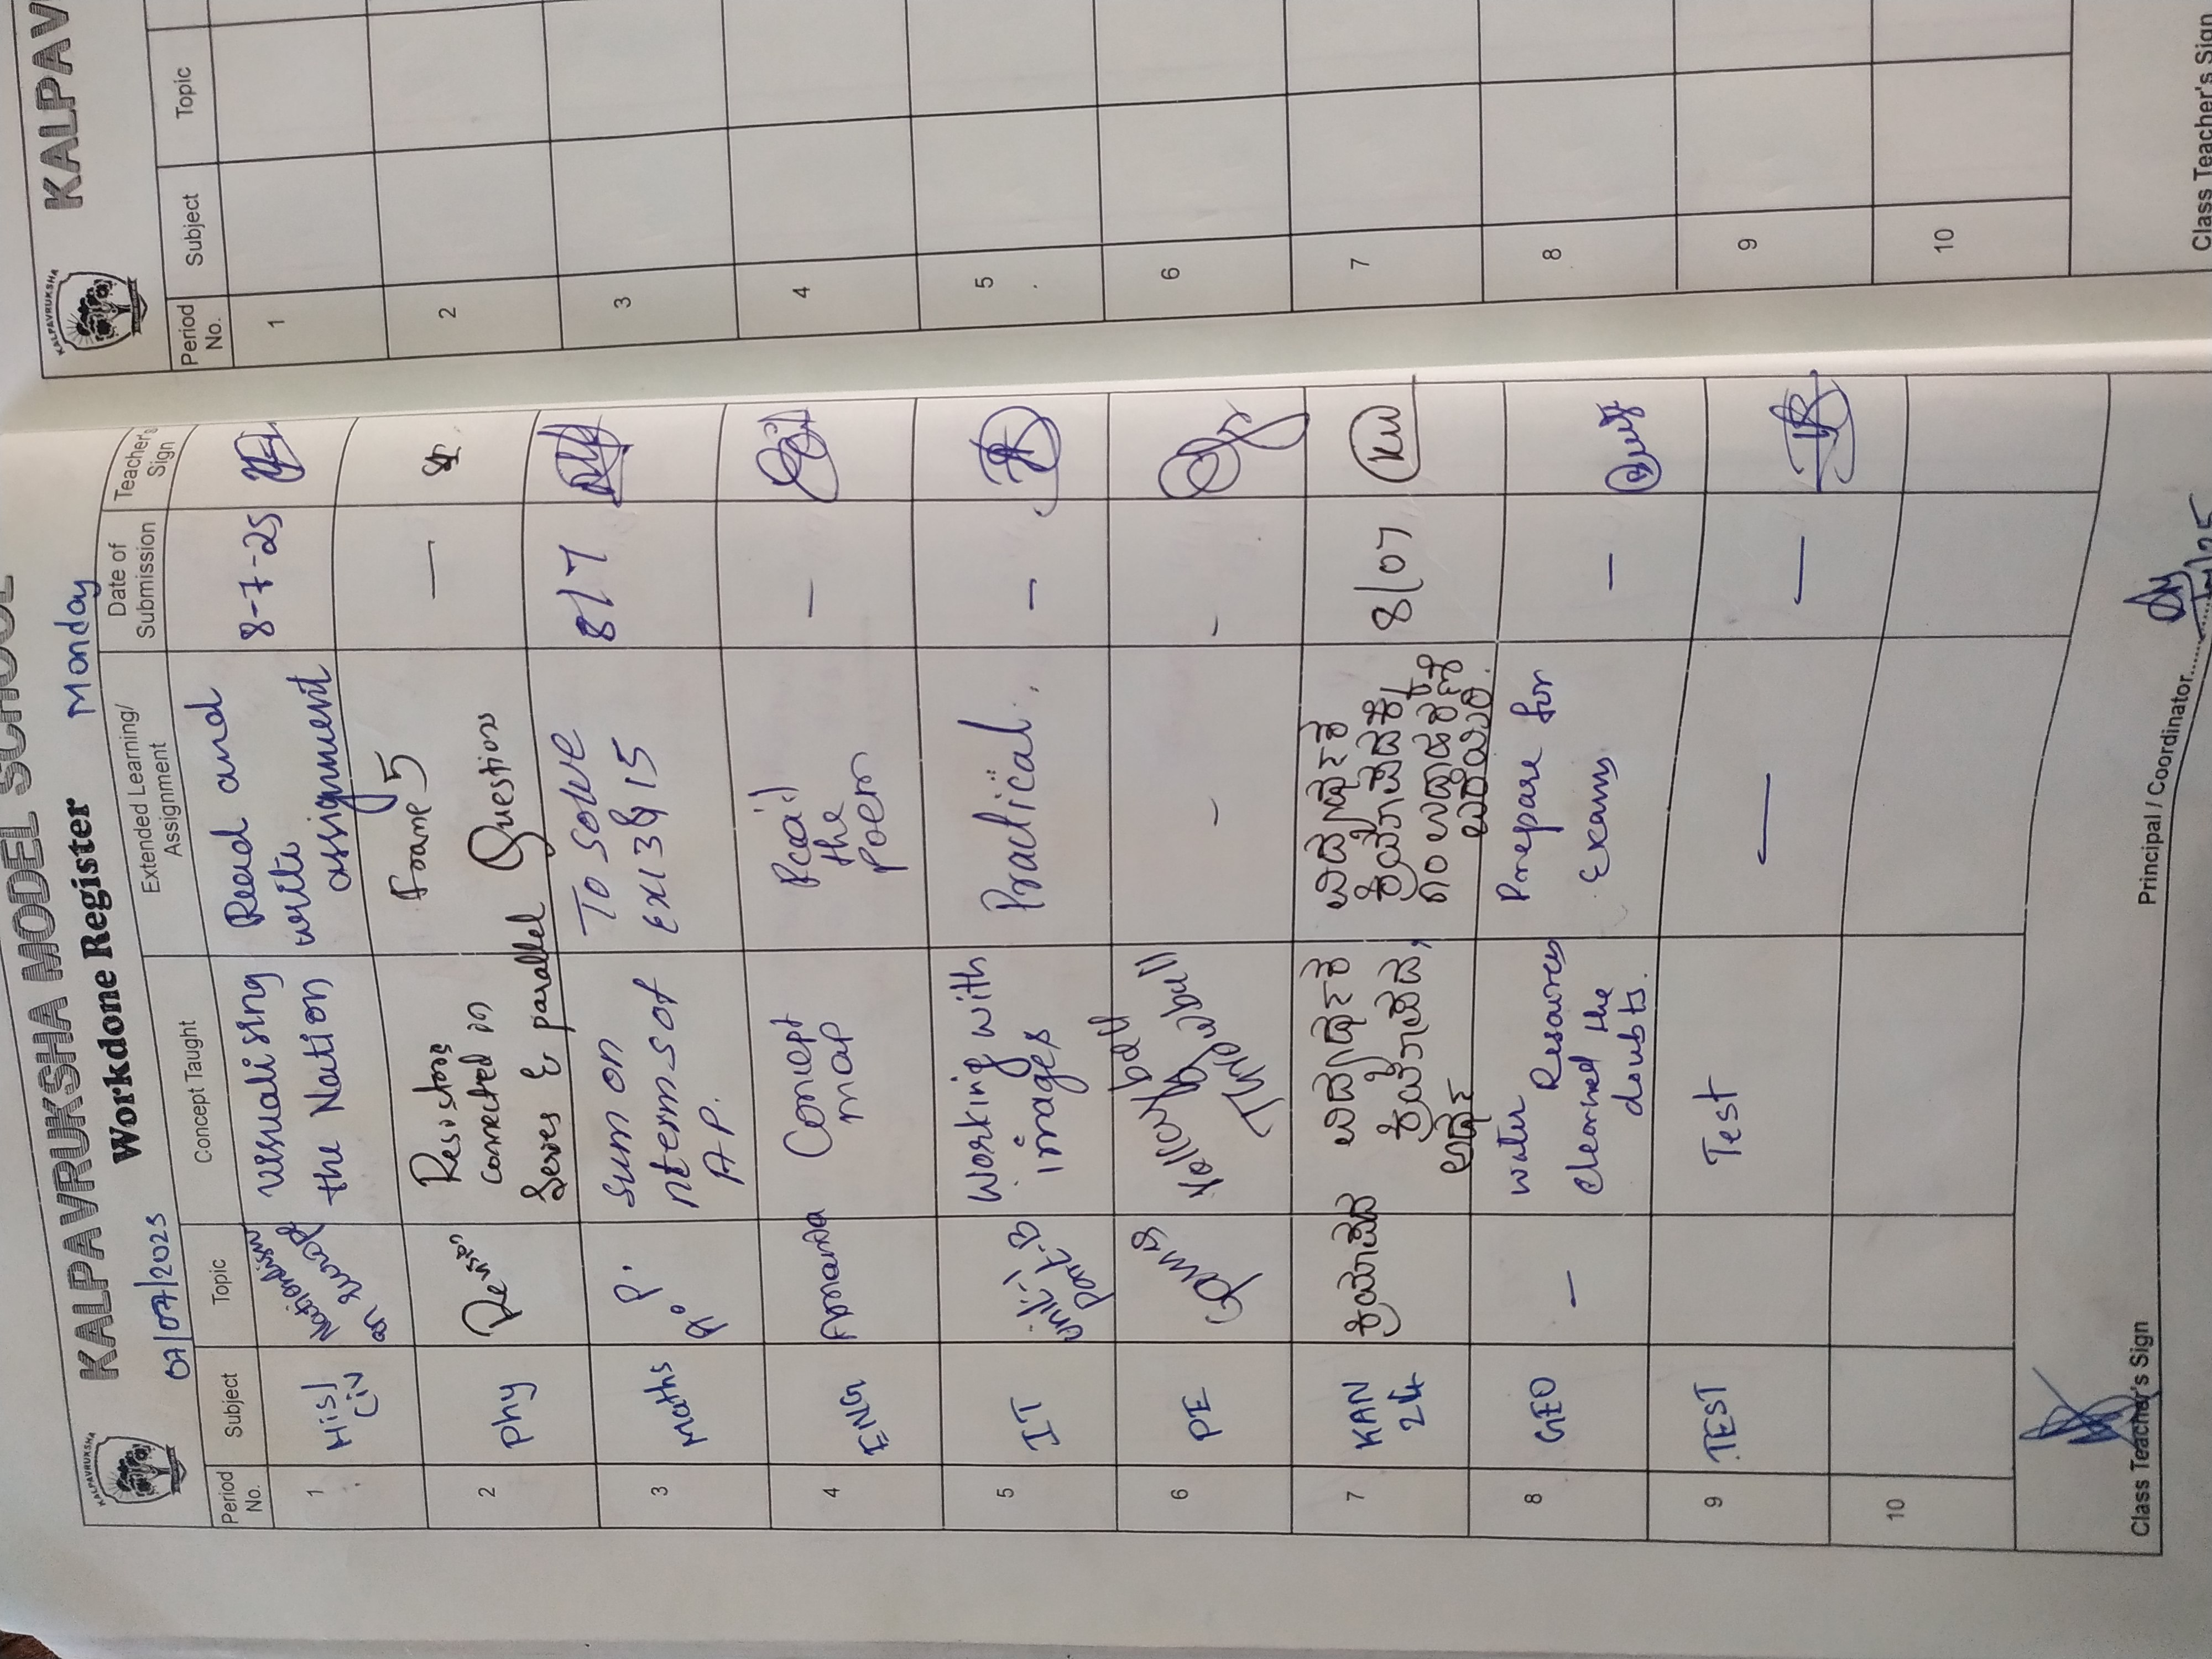 KALPAVRUKSHA
KALPAVRUKSHA MODEL SCHOOL
Workdone Register
07/07/2025
Monday
Period No.
Subject
Topic
Concept Taught
Extended Learning/ Assignment
Date of Submission
Teacher's Sign
1
His/
Civ
Nationalism
in Europe
Visualising
the Nation
Read and
write
assignment
8-7-25
2
Phy
Resistors
connected in
Series & parallel
Frame 5
Questions
—
3
Maths
A. P.
sum on
nterms of
A.P.
To solve
Ex 13 & 15
8/7
4
ENG
Amanda
Concept
map
Read
the
Poem
—
5
IT
unit-1
part-B
Working with
images
Practical.
—
6
PE
Game
Volley ball
Throw ball
—
—
7
KAN
2L
ಕ್ರಿಯಾಪದ
ವಿದ್ಯರ್ಥಕ
ಕ್ರಿಯಾಪದ,
ಅರ್ಥ
ವಿದ್ಯರ್ಥಕ
ಕ್ರಿಯಾಪದಕ್ಕೆ
೧೦ ಉದಾಹರಣೆ
ಬರೆಯಿರಿ.
8/07
KW
8
GEO
—
Water Resources
Cleared the
doubts.
Prepare for
Exams
—
9
TEST
Test
—
—
10
Class Teacher's Sign
Principal / Coordinator
KALPAVRUKSHA
KALPAV
Period No.
Subject
Topic
1
2
3
4
5
6
7
8
9
10
Class Teacher's Sign